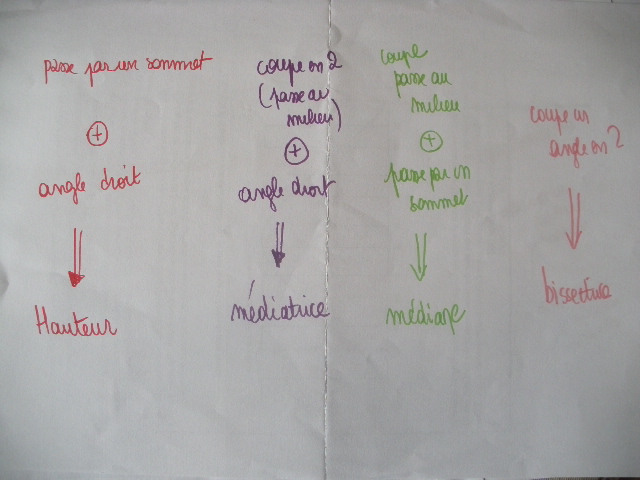 passe par un sommet
+
angle droit
Hauteur
coupe en 2
(passe au
milieu)
+
angle droit
médiatrice
coupe
passe au
milieu
+
passe par un
sommet
médiane
coupe un
angle en 2
bissectrice